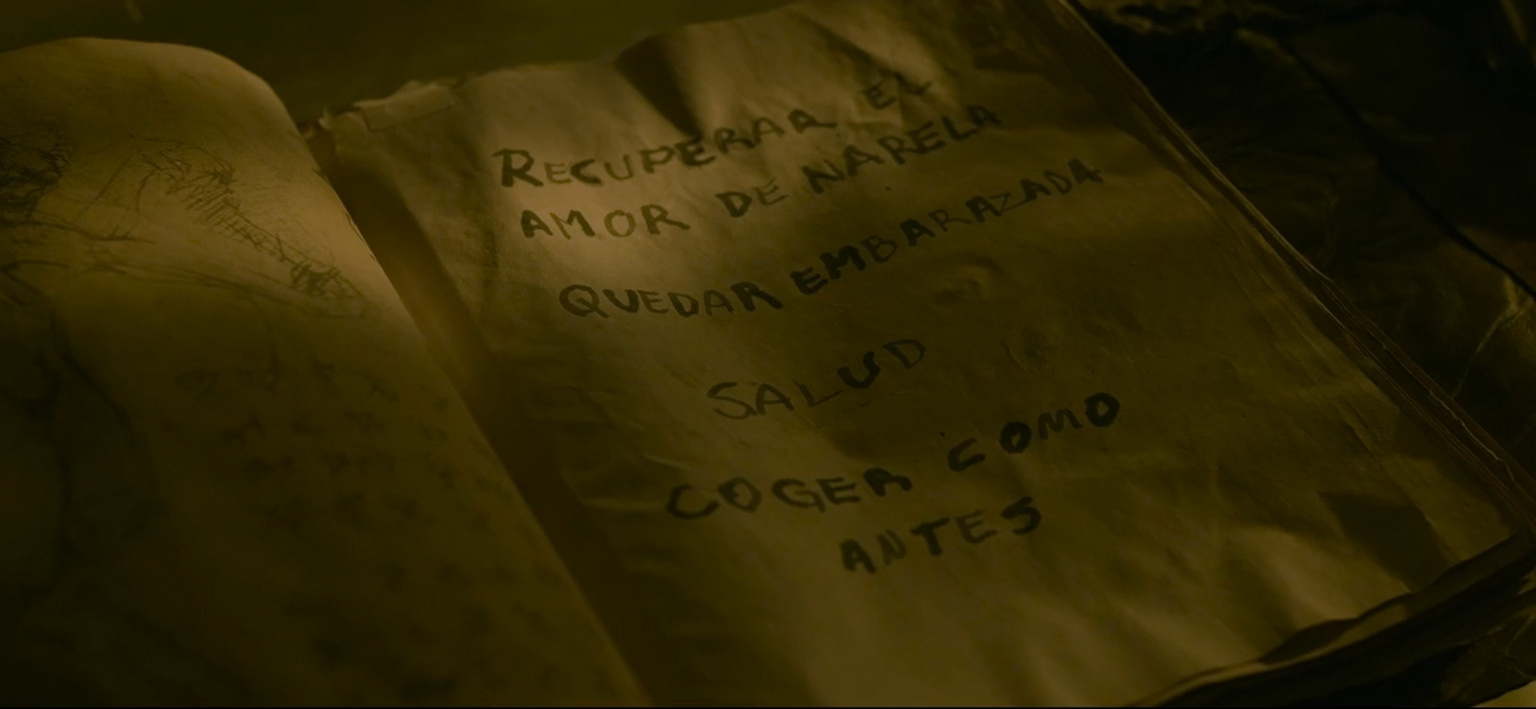 RECUPERAR EL
AMOR DE NARELA
QUEDAR EMBARAZADA
SALUD
COGER COMO
ANTES